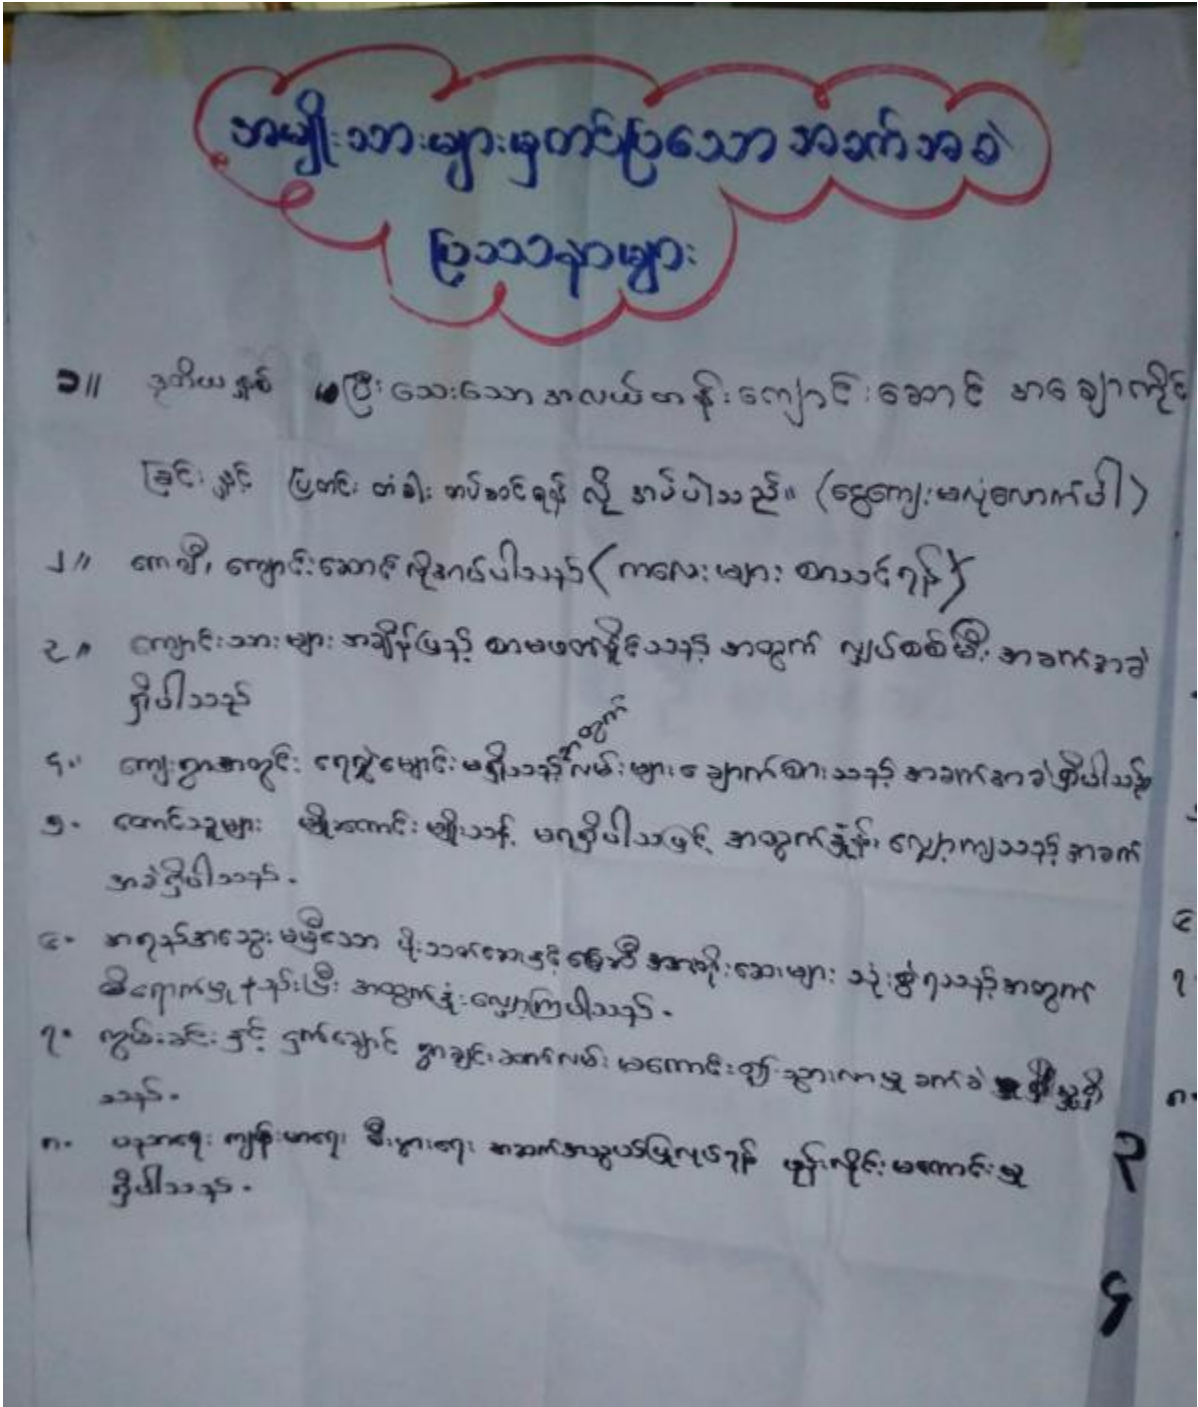 အမျိုးသားများမှတင်ပြသော အခက်အခဲ
ပြဿနာများ
၁။ ဒုတိယနှစ် မပြီးသေးသော အလယ်တန်းကျောင်းဆောင် အချောကိုင်
ခြင်းနှင့် ပြတင်း တံခါး တပ်ဆင်ရန် လိုအပ်ပါသည်။ (ငွေကျေးမလုံလောက်ပါ)
၂။ ကေဂျီ၊ ကျောင်းဆောင် လိုအပ်ပါသည် (ကလေးများ စာသင်ရန်)
၃။ ကျောင်းသားများ အချိန်ပြည့် စာမဖတ်နိုင်သည့် အတွက် လျှပ်စစ်မီး အခက်အခဲ
ရှိပါသည်
အတွက်
၄။ ကျေးရွာအတွင်း ရေလွှဲမြောင်း မရှိသည့် လမ်းများ ချောက်စားသည့် အခက်အခဲရှိပါသည်
၅. တောင်သူများ မျိုးကောင်း မျိုးသန့် မရရှိပါသဖြင့် အထွက်နှုန်း လျှော့ကျသည့် အခက်
အခဲရှိပါသည်.
၆. အရည်အသွေး မမှီသော ပိုးသတ်ဆေးနှင့် မြေသြဇာ အားတိုးဆေးများ သုံးစွဲရသည့်အတွက်
ထိရောက်မှု နည်းပြီး အထွက်နှုံးလျှော့ကြပါသည်.
၇. ကွမ်းခင်းနှင့် ငှက်ချောင် ရွာချင်းဆက်လမ်း မကောင်း၍ သွားလာမှု ခက်ခဲမှုရှိ
သည်.
၈. ပညာရေး ကျန်းမာရေး စီးပွားရေး အဆက်အသွယ်ပြုလုပ်ရန် ဖုန်းလိုင်း မကောင်းမှု
ရှိပါသည်.
၆
၇
၈.
၃
၄